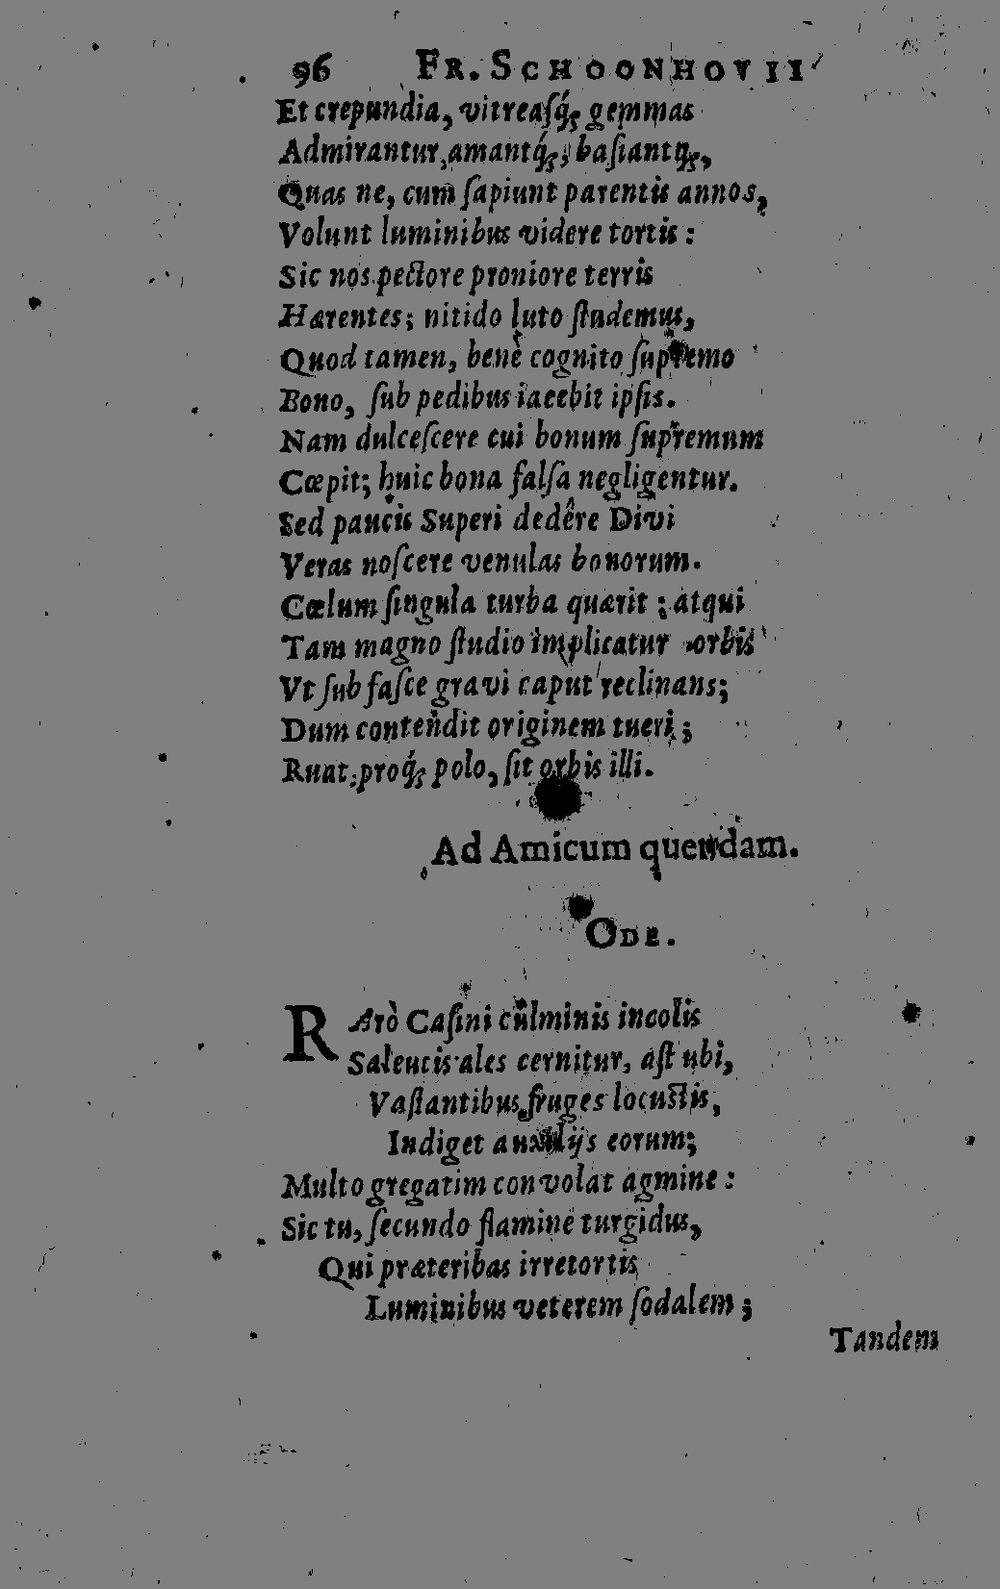 96 FR. SCHOONHOVII
Et crepundia, vitreasq́; gemmas
Admirantur, amantq́;, basiantq;,
Quas ne, cum sapiunt parentis annos,
Volunt luminibus videre tortis:
Sic nos pectore proniore terris
Hærentes; nitido luto studemus,
Quod tamen, benè cognito supremo
Bono, sub pedibus iacebit ipsis.
Nam dulcescere cui bonum supremum
Cœpit; huic bona falsa negligentur.
Sed paucis Superi dedêre Divi
Veras noscere venulas bonorum.
Cœlum singula turba quærit; atqui
Tam magno studio implicatur orbis
Vt sub fasce gravi caput reclinans;
Dum contendit originem tueri;
Ruat; proq́; polo, sit orbis illi.
Ad Amicum quendam.
ODE.
RArò Casini culminis incolis
Saleucis ales cernitur, ast ubi,
Vastantibus fruges locustis,
Indiget auxilijs eorum;
Multo gregatim convolat agmine:
Sic tu, secundo flamine turgidus,
Qui præteribas irretortis
Luminibus veterem sodalem;
Tandem